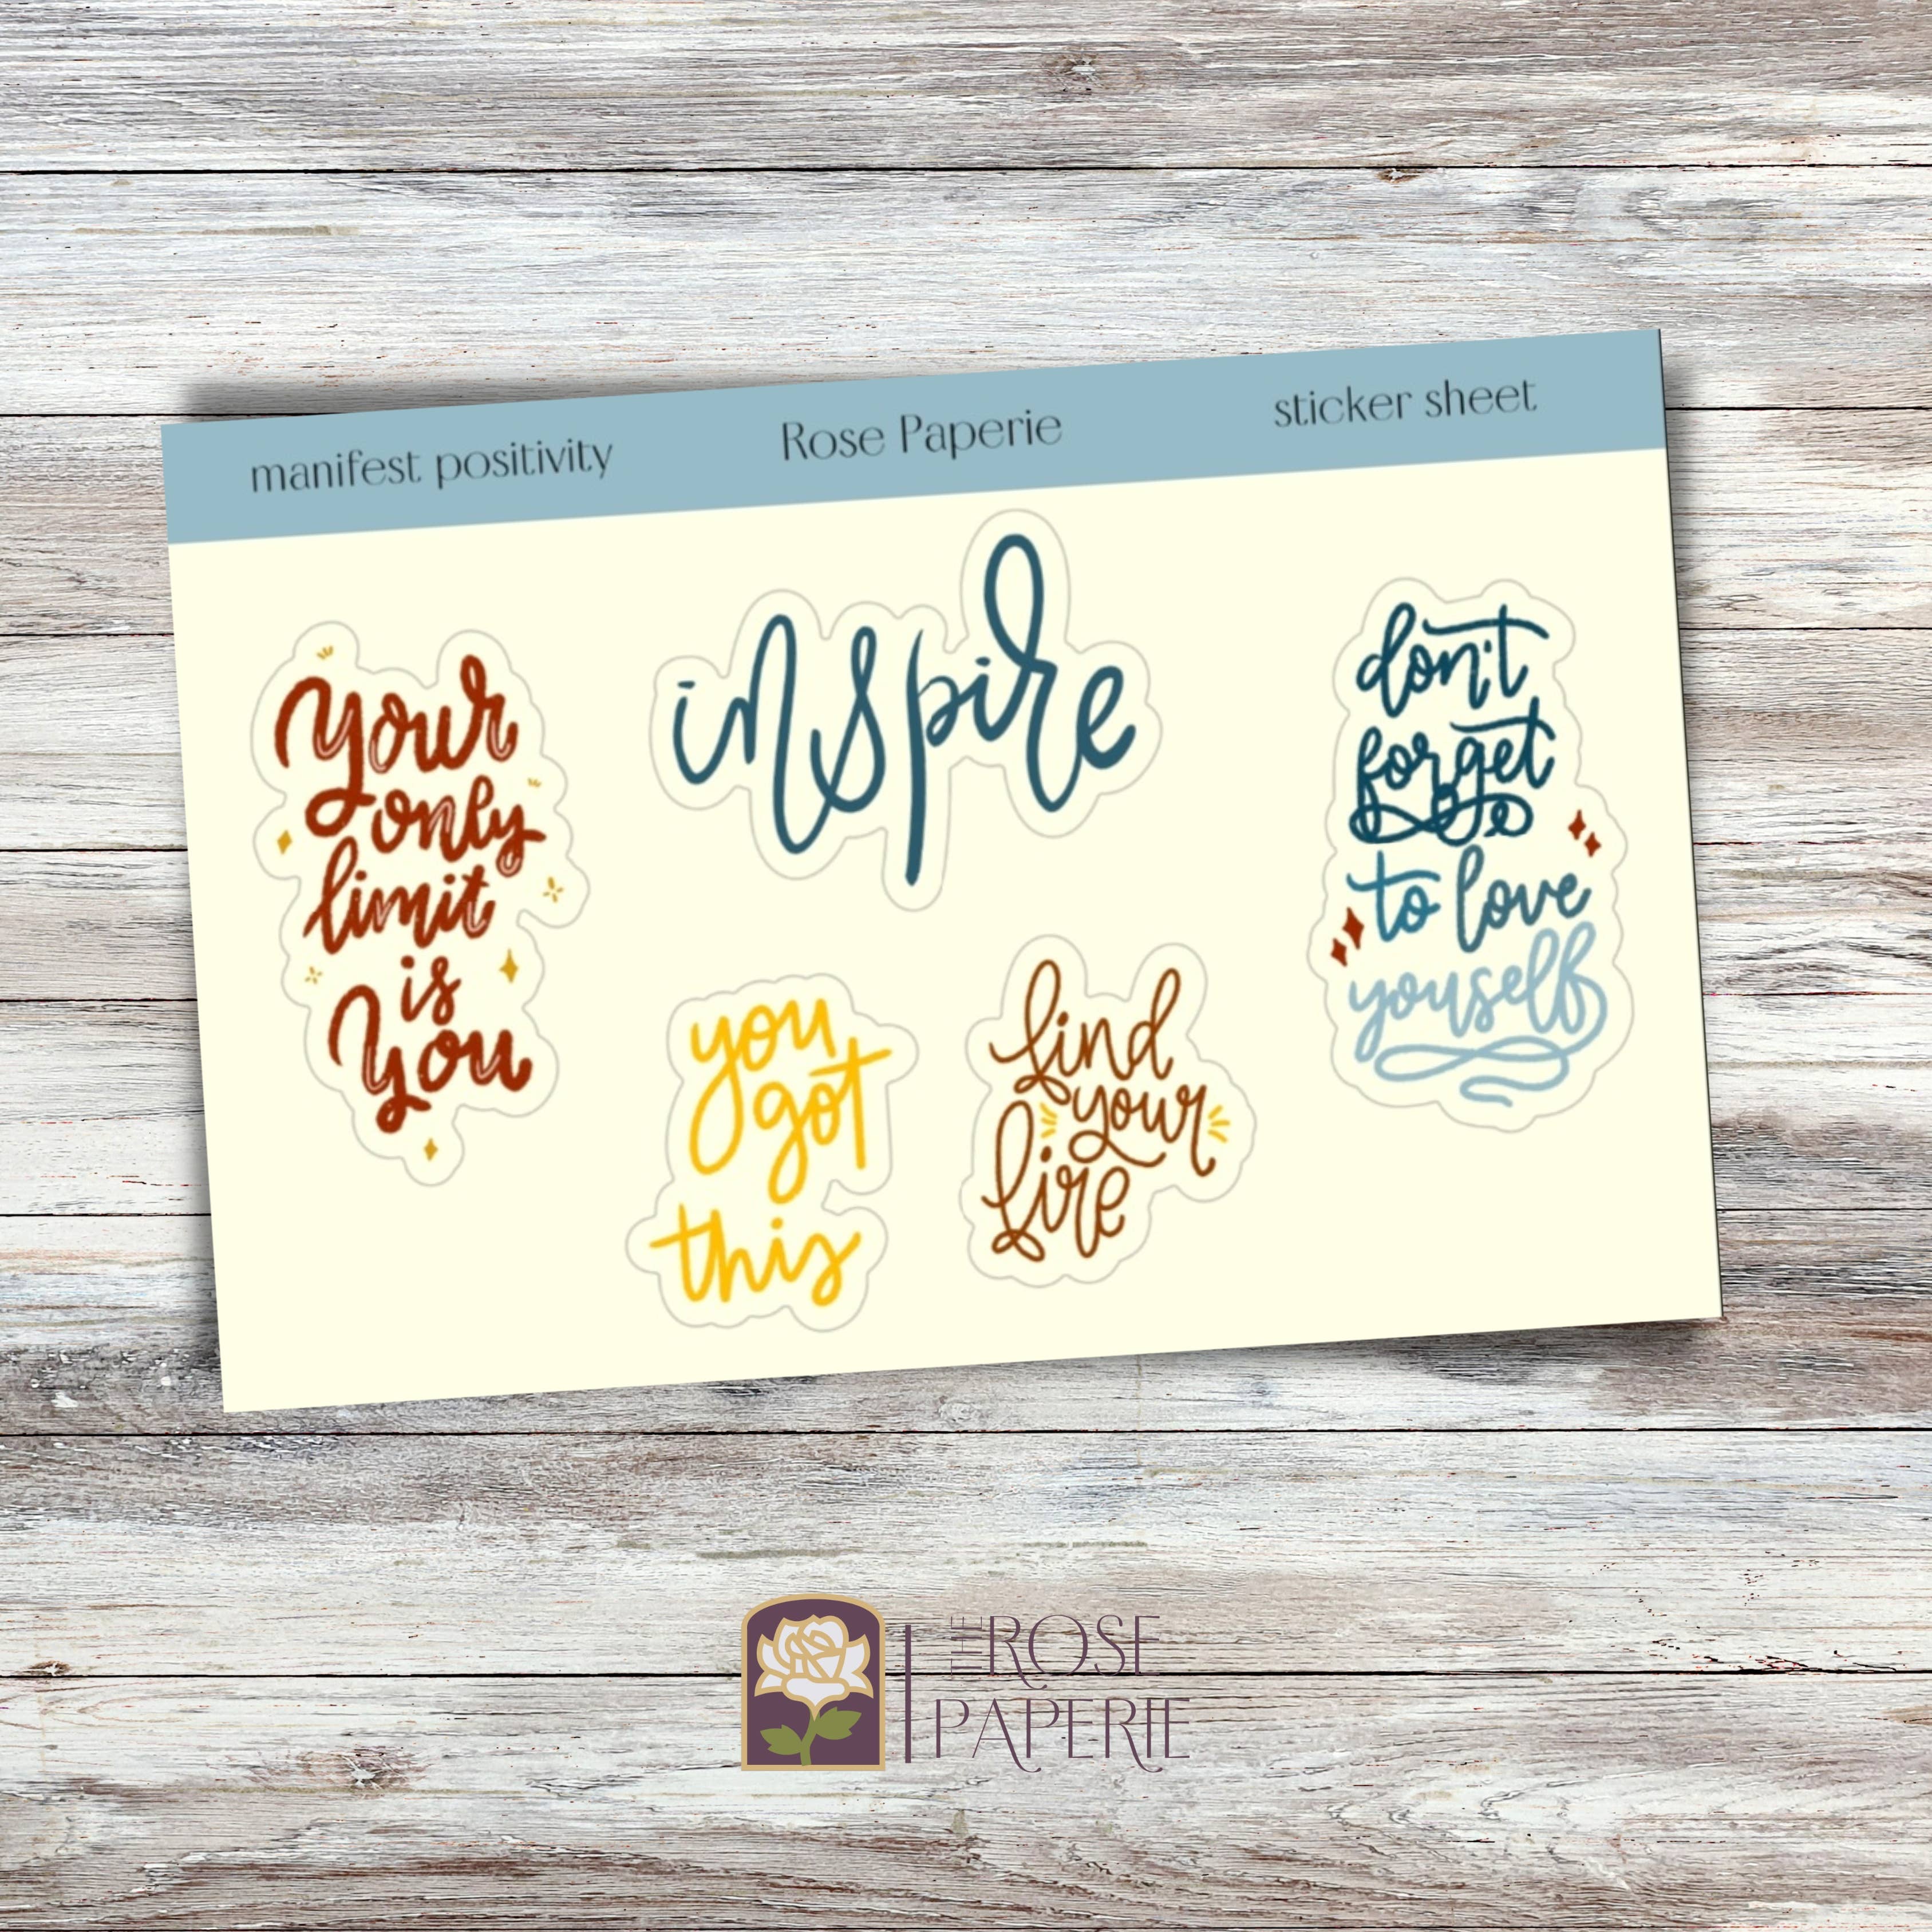 manifest positivity
Rose Paperie
sticker sheet
Your
only
limit
is
You
inspire
you
got
this
find
your
fire
don't
forget
to love
youself
THE ROSE
PAPERIE